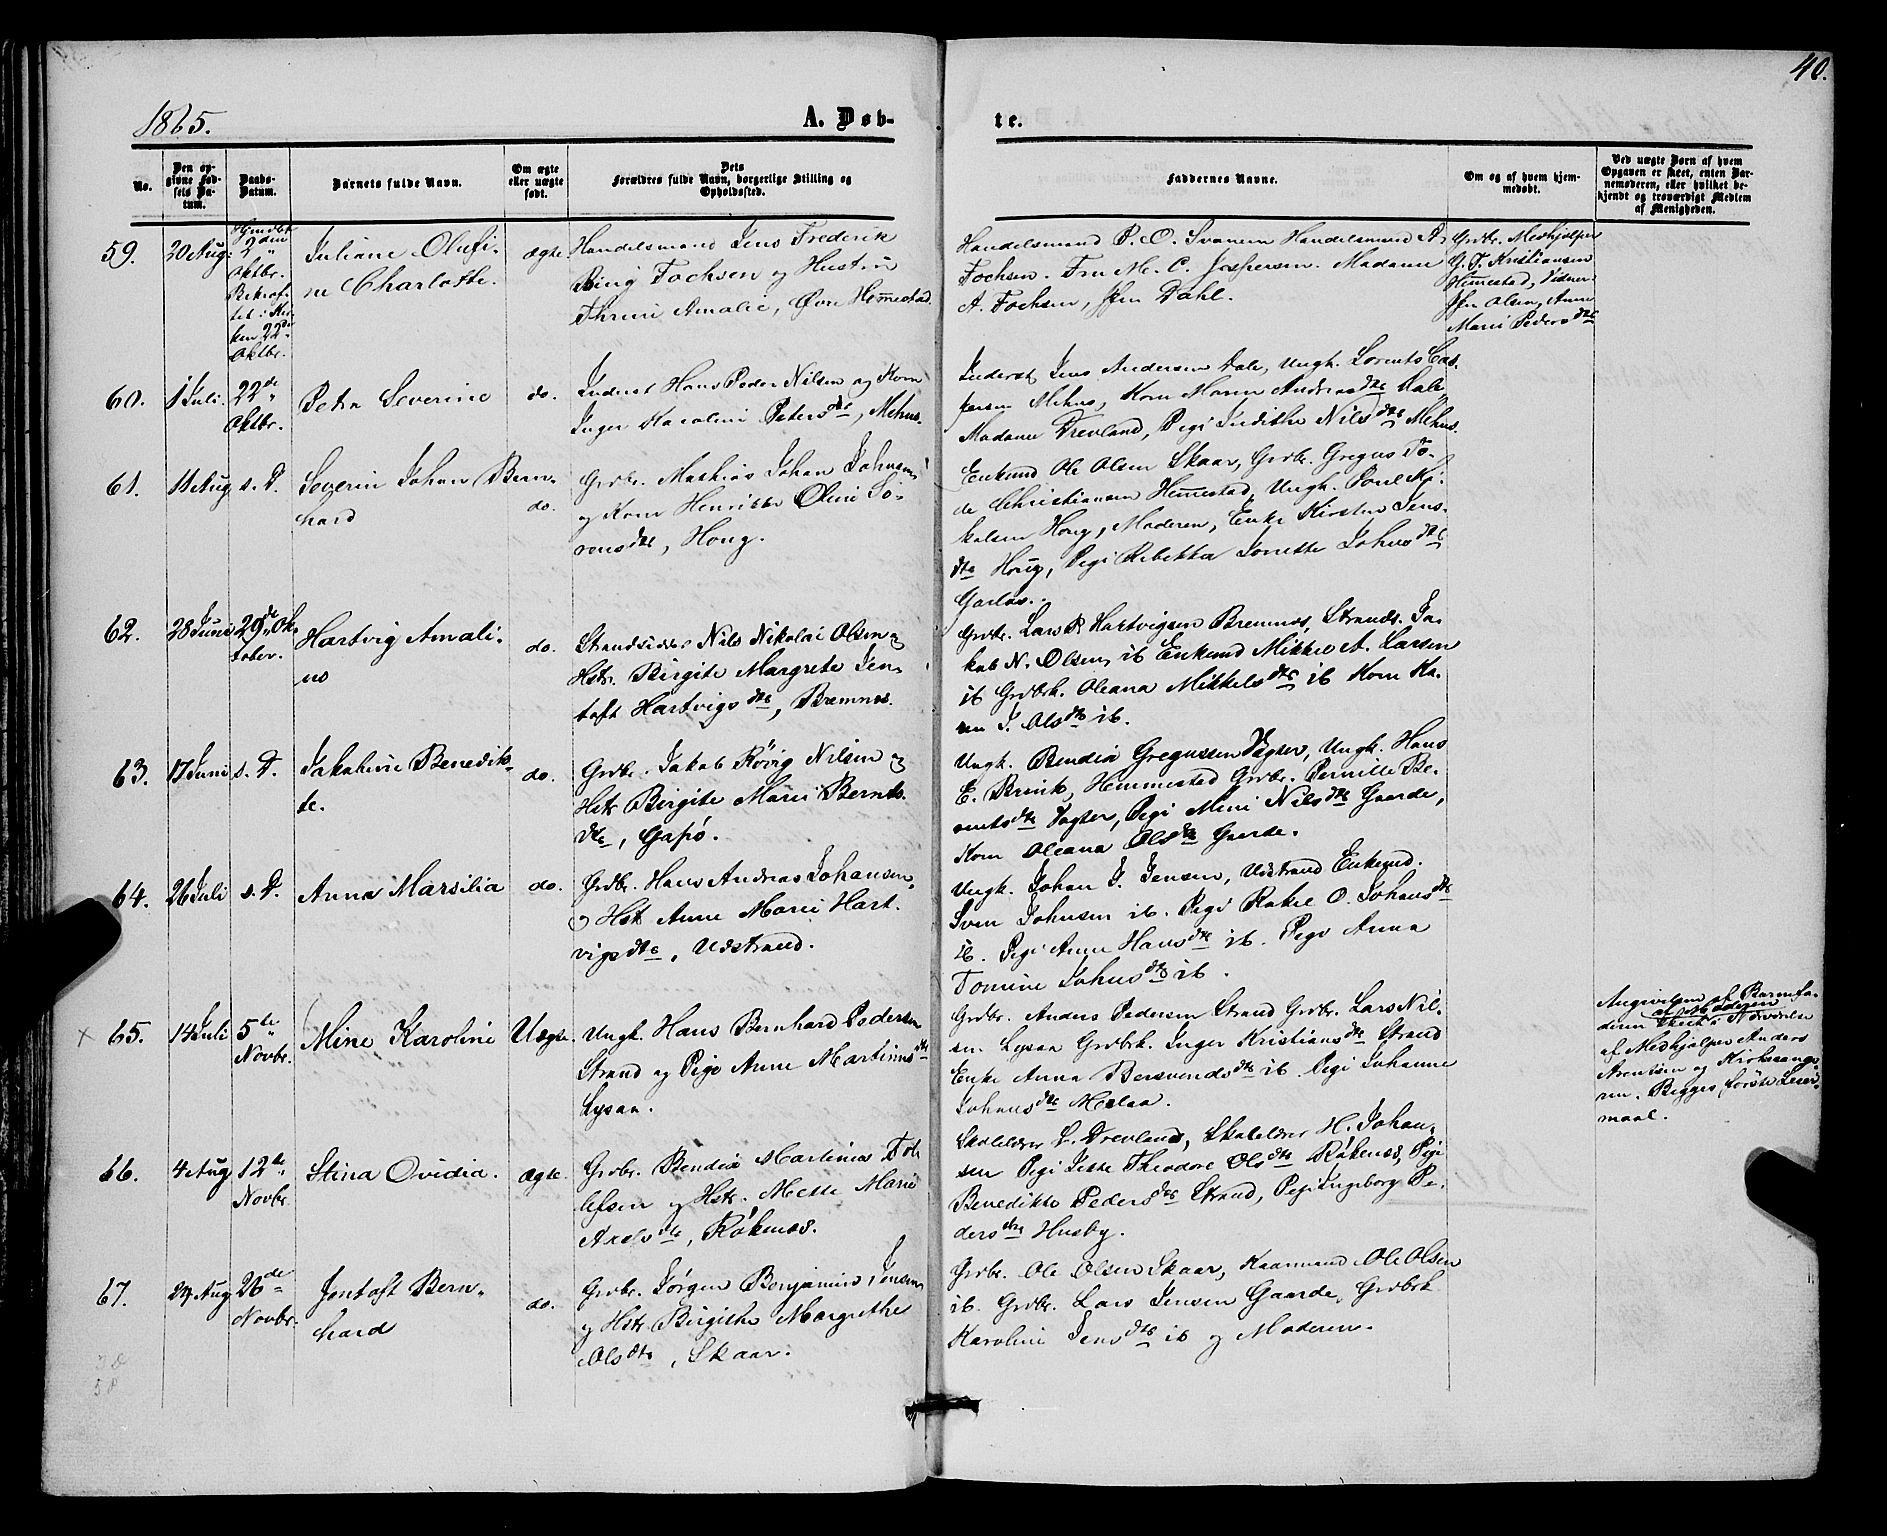 40.
1865.
A. Døb-
te.
No.
Den op-
givne Fød-
sels Da-
tum.
Daabs-
Datum.
Barnets fulde Navn.
Om ægte
eller uægte
født.
Dets
Forældres fulde Navn, borgerlige Stilling og
Opholdssted.
Faddernes Navne.
Om og af hvem hjem-
medøbt.
Ved uægte Born af hvem
Opgaven er skeet, enten Bar-
nemoderen, eller hvilket be-
kjendt og troværdigt Medlem
af Menigheden.
59.
20 Aug.
Hjmdbt
2den
Oktbr.
Bekræf-
tet i Kir-
ken 22de
Oktbr.
Juliane Olufi-
ne Charlotte.
ægte.
Handelsmand Jens Frederik
Bing Fochsen og Hustru
Thrine Amalie, Øvre Hemestad.
Handelsmand P. O. Svanem Handelsmand A.
Fochsen. Fru M. C. Jespersen. Madame
A. Fochsen, Dahl.
Grbr. Medhjelper
G. T. Kristiansen
Hemestad, Vidner
Olsen, Anne
Marie Pedersdtr
60.
1 Juli
22de
Oktbr.
Petra Severine
do.
Inderst Hans Peder Nilsen og Kone
Inger Karoline Petersdtr, Mehus.
Inderst Jens Andersen Dale, Ungk. Lorents Cas-
persen Mehus, Kone Maren Andreasdtr Dale,
Madame Drevland, Pige Judithe Nilsdtr Mehus.
61.
11 Aug
s. D.
Soverin Johan Bern-
hard
do.
Grbr. Mathias Johan Johnsen
og Kone Henrikke Oline So-
rensdtr, Houg.
Enkemd Ole Olsen Skaar, Grbr. Gregus To-
de Christiansen Hemestad, Ungk. Poul Mi-
kalsen Houg, Moderen, Enke Kirsten Jens-
dtr Houg, Pige Rebekka Jonette Johnsdtr
62.
28 Juni
29de Ok-
tober.
Hartvig Amali-
us
do.
Strandsidder Nils Nikolai Olsen og
Hstr. Birgite Margrete Jen-
toft Hartvigsdtr, Bremnes.
Grbr. Lars P. Hartvigsen Bremnes, Strands. Ja-
kob N. Olsen ib Enkemd Mikkel A. Larsen
ib Grbrk. Oleana Mikkelsdtr ib Kone Ka-
ren J. Olsdtr ib.
63.
17 Juni
s. D.
Jakobine Benedik-
te.
do.
Grbr. Jakob Rövig Nilsen og
Hstr Birgite Marie Bernts-
dtr, Gasö.
Ungk. Bendix Gregussen Vagter, Ungk. Hans
E. Brink, Hemmestad Grbr. Pernille Be-
rentsdtr Vagter, Pige Mine Nilsdtr Gaarde,
Kone Oleana Olsdtr Gaarde.
64.
26 Juli
s. D.
Anna Marsilia
do.
Grbr. Hans Andreas Johansen
og Hstr Anne Marie Hart-
vigsdtr, Udstrand.
Ungk. Johan J. Jensen, Udstrand Enkemd.
Sven Johnsen ib. Pige Rakel O. Johansdtr
ib. Pige Anne Hansdtr ib. Pige Anna
Tomine Johnsdtr ib.
×
65.
14 Juli
5te
Novbr.
Mine Karoline
Uægte.
Ungk. Hans Bernhard Pedersen
Strand og Pige Anne Martinusdtr
Lysaa.
Grbr. Anders Pedersen Strand Grbr. Lars Nil-
sen Lysaa Grbrk. Inger Kristiansdtr Strand
Enke Anna Bersvendsdtr ib. Pige Johanne
Johnsdtr Melaa.
Angivelsen af Barnefa-
deren skeet af Moderen i Nærværelse
af Medhjelper Anders
Arentsen og Kirkesange-
ren. Begges første Leier-
maal.
66.
4 Aug
12te
Novbr.
Stina Ovidia.
ægte.
Grbr. Bendix Martinus Tol-
lefsen og Hstr. Mette Marie
Axelsdtr, Røkenes.
Skolelærer L. Drevland, Skolelærer H. Johan-
sen Pige Jette Theodore Olsdtr Røkenes, Pige
Benedikte Pedersdtr Strand, Pige Ingeborg Pe-
dersdtr Husby.
67.
24 Aug
26de
Novbr.
Jentoft Bern-
hard
do.
Grbr. Jørgen Benjamin Jensen
og Hstr. Birgithe Margrethe
Olsdtr, Skaar.
Grbr. Ole Olsen Skaar, Kaarmand Ole Olsen
ib. Grbr. Lars Jensen Gaarde, Grbrk
Karoline Jensdtr ib og Moderen.